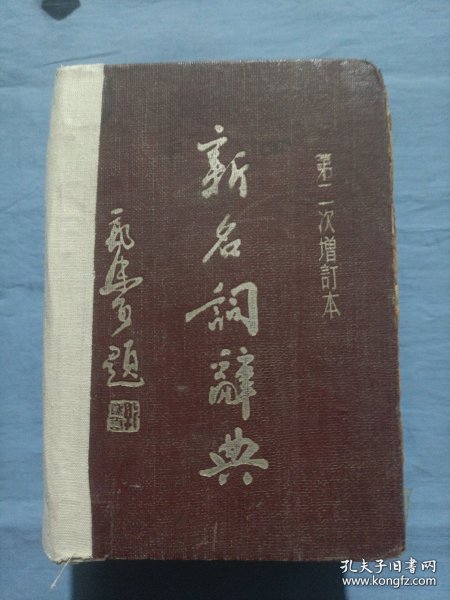 第二次增訂本
新名詞辭典
題
孔夫子旧书网
www.kongfz.com